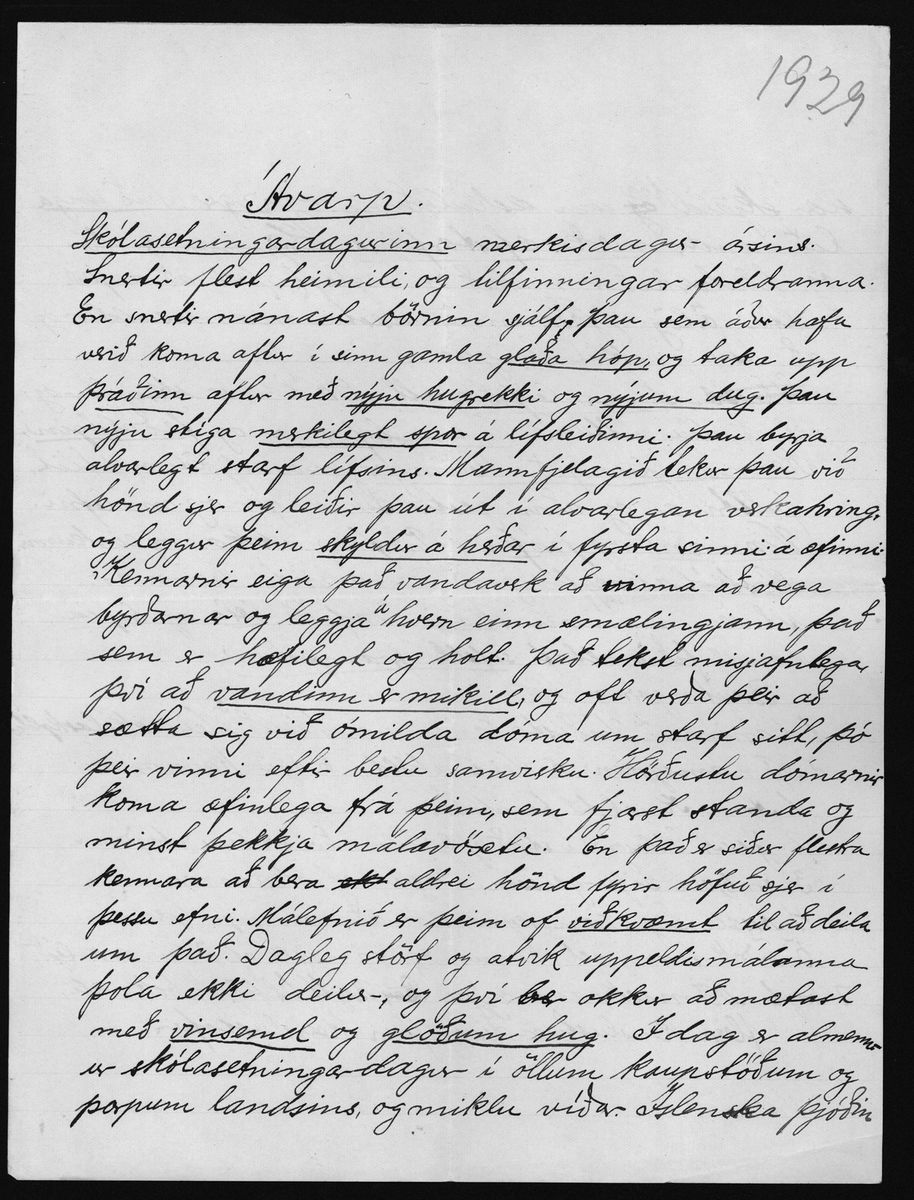 1929
Ávarp.
Skólasetningardagurinn merkisdagur ársins.
Snertir flest heimili, og tilfinningar foreldranna.
En snertir nánast börnin sjálf; þau sem áður hafa
verið koma aftur í sinn gamla glaða hóp, og taka upp
þráðinn aftur með nýju hugrekki og nýjum dug. Þau
nýju stíga merkilegt spor á lífsleiðinni. Þau byrja
alvarlegt starf lífsins. Mannfjelagið tekur þau við
hönd sjer og leiðir þau út í alvarlegan verkahring,
og leggur þeim skyldur á herðar í fyrsta sinni á æfinni.
Kennarnir eiga það vandaverk að vinna að vega
byrðarnar og leggja á hvern einn smælingjann, það
sem er hæfilegt og holt. Það tekst misjafnlega,
því að vandinn er mikill, og oft verða þeir að
sætta sig við ómilda dóma um starf sitt, þó
þeir vinni eftir bestu samvisku. Hörðustu dómarnir
koma æfinlega frá þeim, sem fjærst standa og
minst þekkja málavöxtu. En það er siður flestra
kennara að bera aldrei hönd fyrir höfuð sjer í
þessu efni. Málefnið er þeim of viðkvæmt til að deila
um það. Dagleg störf og atvik uppeldismálanna
þola ekki deilur, og því ber okkur að mætast
með vinsemd og glöðum hug. Í dag er almenn-
ur skólasetningardagur í öllum kaupstöðum og
þorpum landsins, og miklu víðar. Íslenska þjóðin